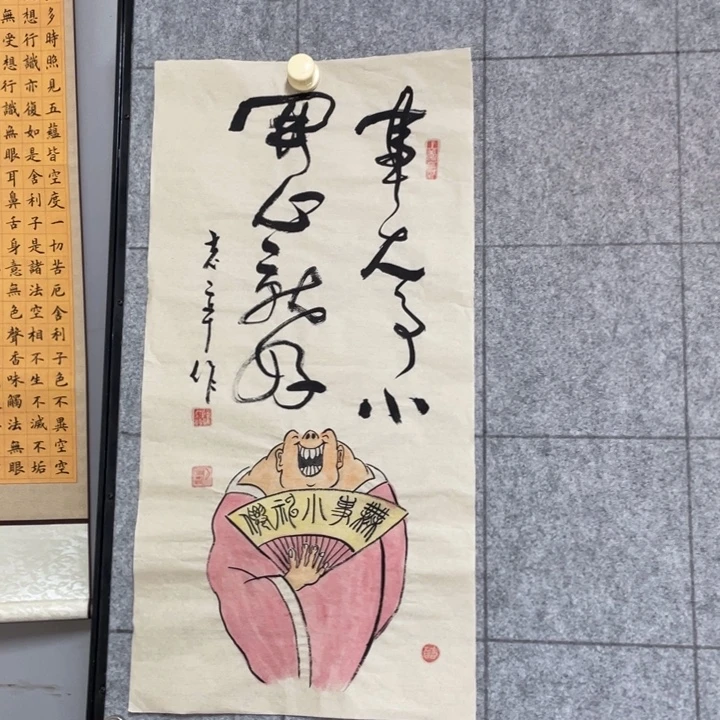 事大事小
開心就好
作
無事小神僊
多時照見五蘊皆空度一切苦厄舍利子色不異空空
想行識亦復如是舍利子是諸法空相不生不滅不垢
無受想行識無眼耳鼻舌身意無色聲香味觸法無眼